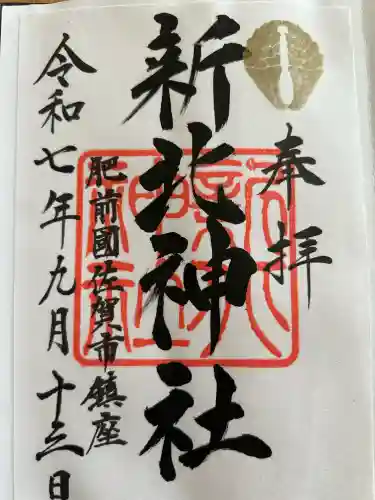 奉拝
新北神社
肥前國佐賀市鎮座
令和七年九月十三日